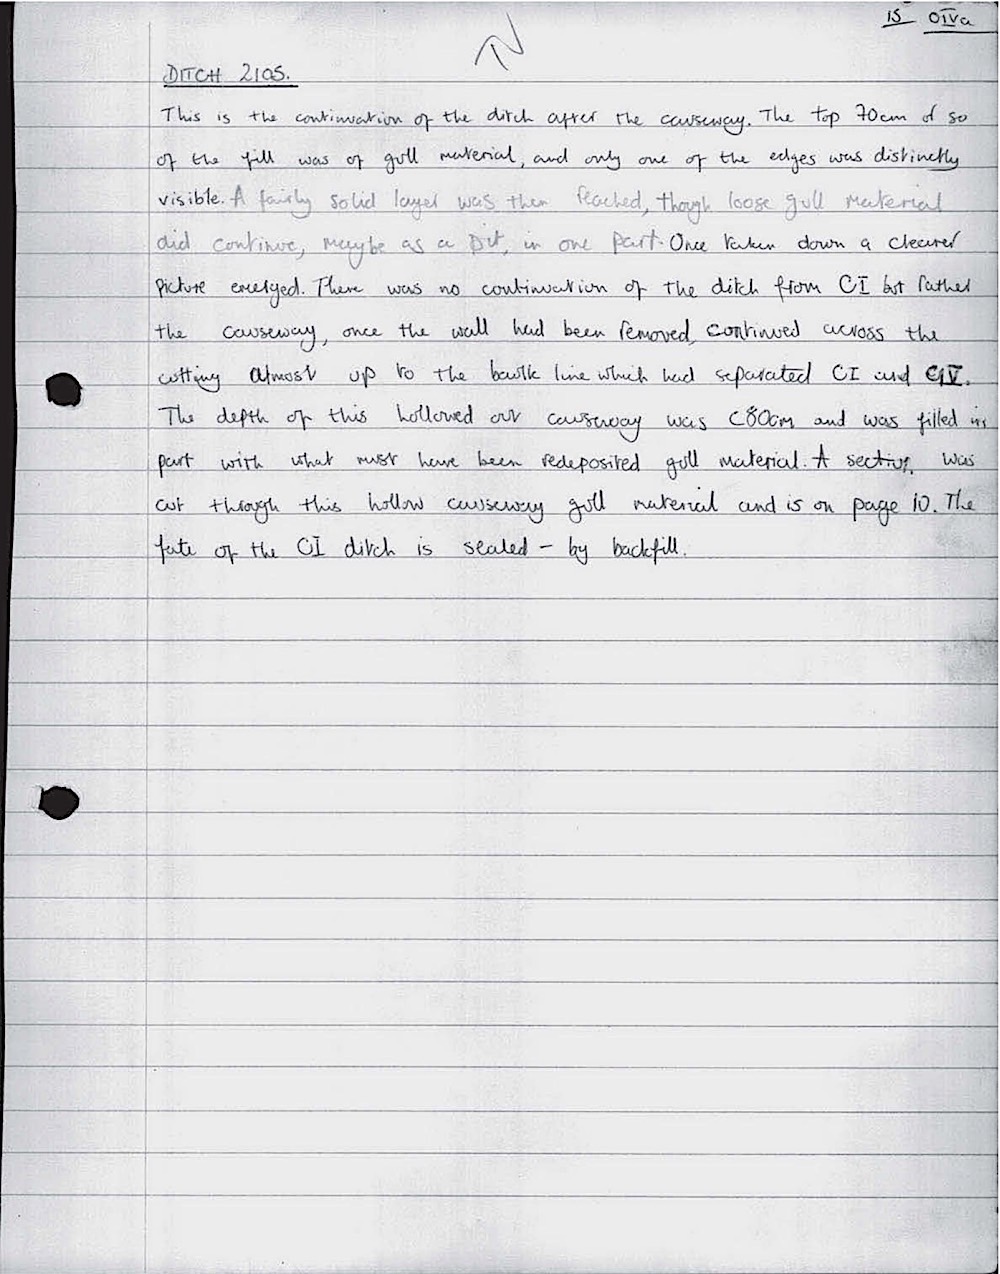 15 OIVa
DITCH 2105.
This is the continuation of the ditch after the causeway. The top 70cm of so
of the fill was of gull material, and only one of the edges was distinctly
visible. A fairly solid layer was then reached, though loose gull material
did continue, maybe as a pit, in one part. Once taken down a clearer
picture emerged. There was no continuation of the ditch from CI but rather
the causeway, once the wall had been removed, continued across the
cutting almost up to the baulk line which had separated CI and CIV.
The depth of this hollowed out causeway was c80cm and was filled in
part with what must have been redeposited gull material. A section was
cut through this hollow causeway gull material and is on page 10. The
fate of the CI ditch is sealed – by backfill.